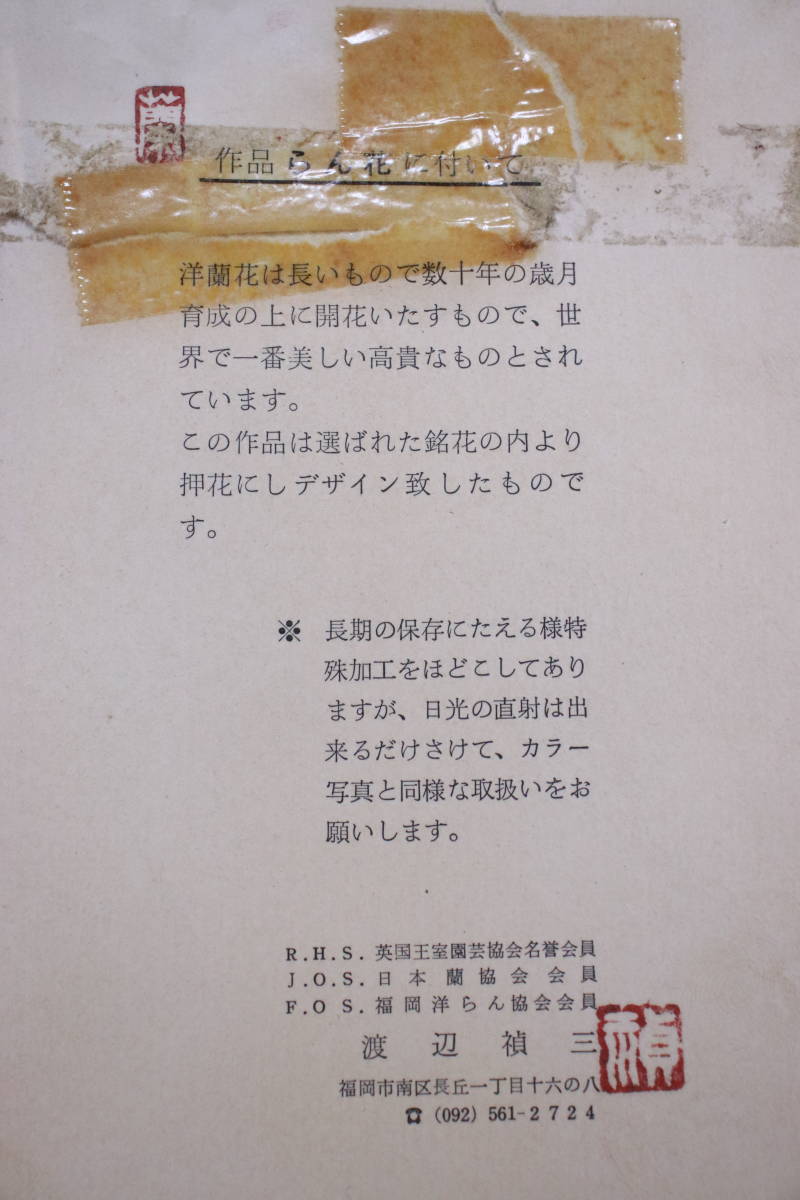 蘭
作品らん花に付いて
洋蘭花は長いもので数十年の歳月
育成の上に開花いたすもので、世
界で一番美しい高貴なものとされ
ています。
この作品は選ばれた銘花の内より
押花にしデザイン致したもので
す。
※ 長期の保存にたえる様特
殊加工をほどこしてあり
ますが、日光の直射は出
来るだけさけて、カラー
写真と同様な取扱いをお
願いします。
R.H.S. 英国王室園芸協会名誉会員
J.O.S. 日本蘭協会会員
F.O S. 福岡洋らん協会会員
渡辺禎三
禎
福岡市南区長丘一丁目十六の八
☎ (092) 561-2724